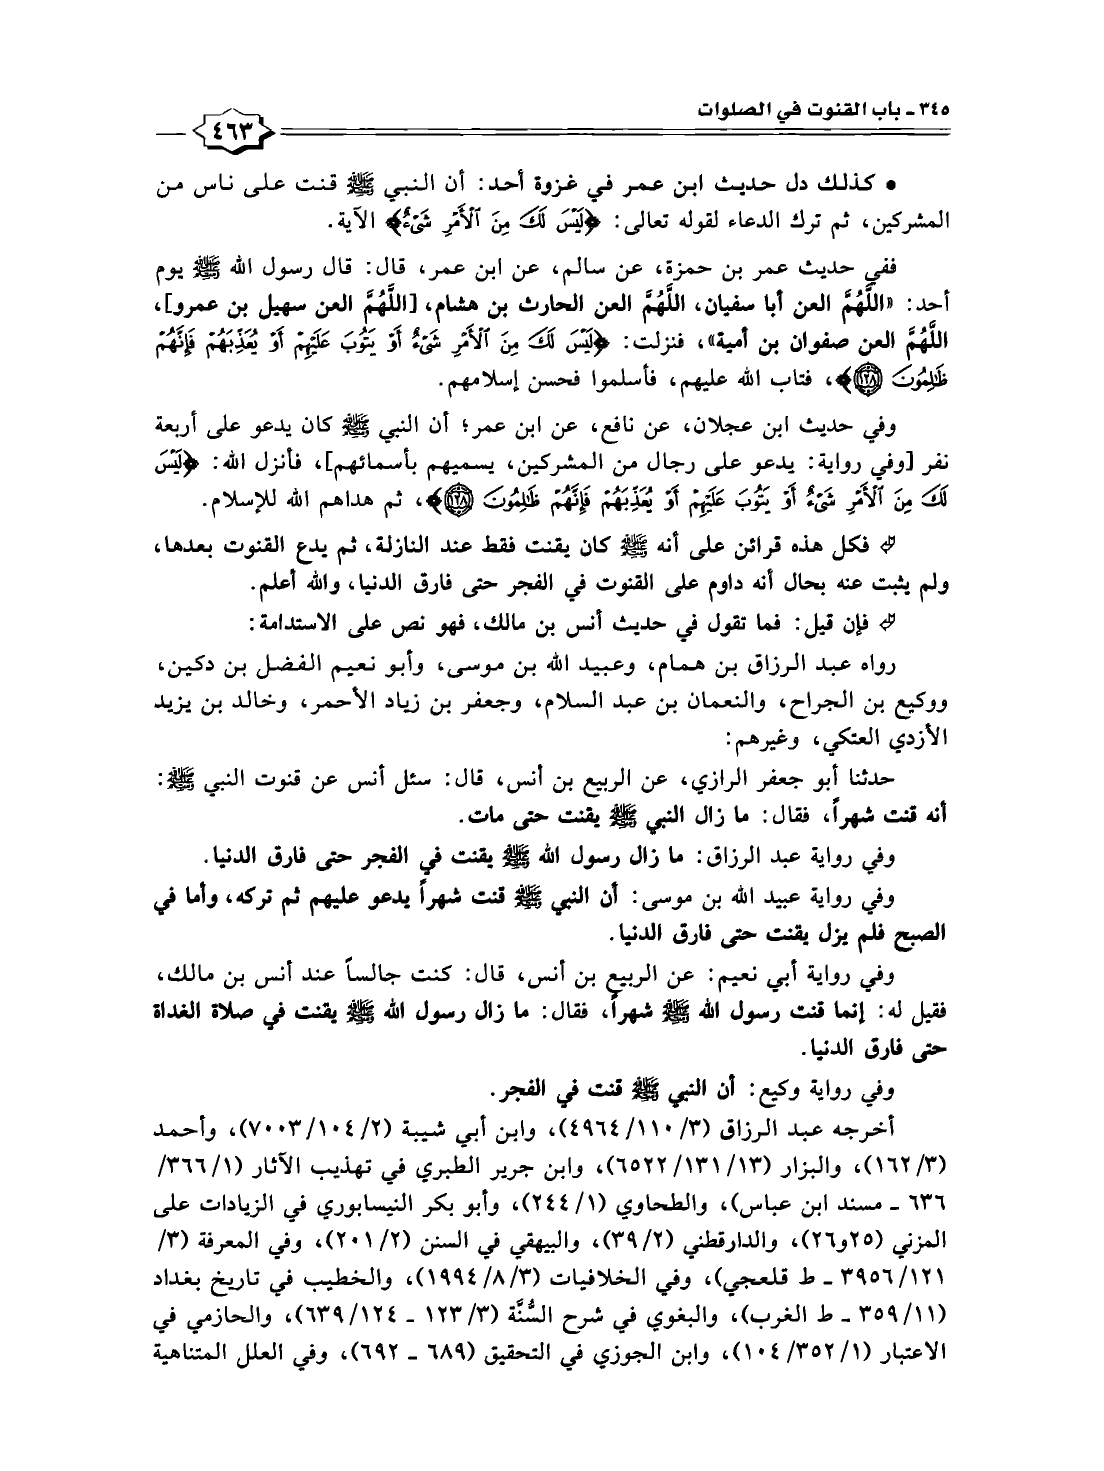 ٣٤٥ ـ باب القنوت في الصلوات
٤٦٣
• كذلك دل حديث ابن عمر في غزوة أحد: أن النبي ﷺ قنت على ناس من
المشركين، ثم ترك الدعاء لقوله تعالى: ﴿لَيْسَ لَكَ مِنَ ٱلْأَمْرِ شَىْءٌ﴾ الآية.
ففي حديث عمر بن حمزة، عن سالم، عن ابن عمر، قال: قال رسول الله ﷺ يوم
أحد: «اللَّهُمَّ العن أبا سفيان، اللَّهُمَّ العن الحارث بن هشام، [اللَّهُمَّ العن سهيل بن عمرو]،
اللَّهُمَّ العن صفوان بن أمية»، فنزلت: ﴿لَيْسَ لَكَ مِنَ ٱلْأَمْرِ شَىْءٌ أَوْ يَتُوبَ عَلَيْهِمْ أَوْ يُعَذِّبَهُمْ فَإِنَّهُمْ
ظَٰلِمُونَ ١٢٨﴾، فتاب الله عليهم، فأسلموا فحسن إسلامهم.
وفي حديث ابن عجلان، عن نافع، عن ابن عمر؛ أن النبي ﷺ كان يدعو على أربعة
نفر [وفي رواية: يدعو على رجال من المشركين، يسميهم بأسمائهم]، فأنزل الله: ﴿لَيْسَ
لَكَ مِنَ ٱلْأَمْرِ شَىْءٌ أَوْ يَتُوبَ عَلَيْهِمْ أَوْ يُعَذِّبَهُمْ فَإِنَّهُمْ ظَٰلِمُونَ ١٢٨﴾، ثم هداهم الله للإسلام.
فكل هذه قرائن على أنه ﷺ كان يقنت فقط عند النازلة، ثم يدع القنوت بعدها،
ولم يثبت عنه بحال أنه داوم على القنوت في الفجر حتى فارق الدنيا، والله أعلم.
فإن قيل: فما تقول في حديث أنس بن مالك، فهو نص على الاستدامة:
رواه عبد الرزاق بن همام، وعبيد الله بن موسى، وأبو نعيم الفضل بن دكين،
ووكيع بن الجراح، والنعمان بن عبد السلام، وجعفر بن زياد الأحمر، وخالد بن يزيد
الأزدي العتكي، وغيرهم:
حدثنا أبو جعفر الرازي، عن الربيع بن أنس، قال: سئل أنس عن قنوت النبي ﷺ:
أنه قنت شهراً، فقال: ما زال النبي ﷺ يقنت حتى مات.
وفي رواية عبد الرزاق: ما زال رسول الله ﷺ يقنت في الفجر حتى فارق الدنيا.
وفي رواية عبيد الله بن موسى: أن النبي ﷺ قنت شهراً يدعو عليهم ثم تركه، وأما في
الصبح فلم يزل يقنت حتى فارق الدنيا.
وفي رواية أبي نعيم: عن الربيع بن أنس، قال: كنت جالساً عند أنس بن مالك،
فقيل له: إنما قنت رسول الله ﷺ شهراً، فقال: ما زال رسول الله ﷺ يقنت في صلاة الغداة
حتى فارق الدنيا.
وفي رواية وكيع: أن النبي ﷺ قنت في الفجر.
أخرجه عبد الرزاق (٣/ ١١٠/ ٤٩٦٤)، وابن أبي شيبة (٢/ ١٠٤/ ٧٠٠٣)، وأحمد
(٣/ ١٦٢)، والبزار (١٣/ ١٣١/ ٦٥٢٢)، وابن جرير الطبري في تهذيب الآثار (١/ ٣٦٦/
٦٣٦ ـ مسند ابن عباس)، والطحاوي (١/ ٢٤٤)، وأبو بكر النيسابوري في الزيادات على
المزني (٢٥و٢٦)، والدارقطني (٢/ ٣٩)، والبيهقي في السنن (٢/ ٢٠١)، وفي المعرفة (٣/
١٢١/ ٣٩٥٦ ـ ط قلعجي)، وفي الخلافيات (٣/ ٨/ ١٩٩٤)، والخطيب في تاريخ بغداد
(١١/ ٣٥٩ ـ ط الغرب)، والبغوي في شرح السُّنَّة (٣/ ١٢٣ ـ ١٢٤/ ٦٣٩)، والحازمي في
الاعتبار (١/ ٣٥٢/ ١٠٤)، وابن الجوزي في التحقيق (٦٨٩ ـ ٦٩٢)، وفي العلل المتناهية